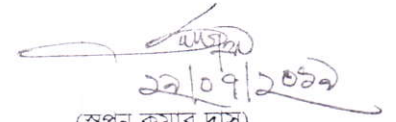 ২২/০৭/২০১৯
(স্বপন কুমার দাস)